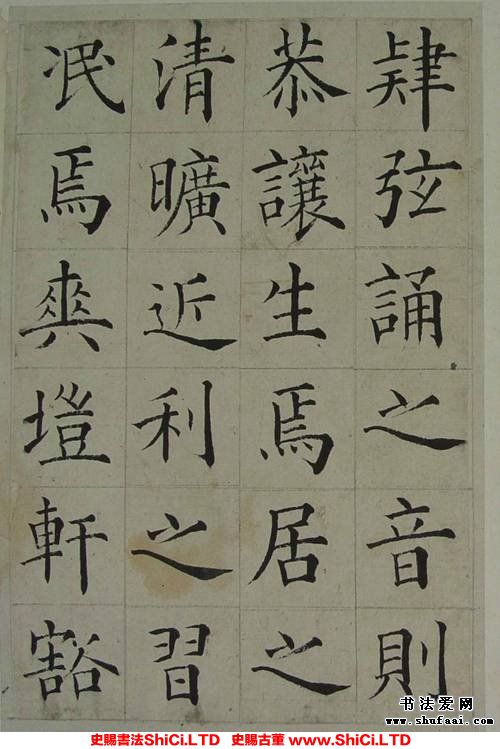 肄弦誦之音則
恭讓生焉居之
清曠近利之習
冺焉爽塏軒豁
书法爱网
www.shufaai.com
史賜書法ShiCi.LTD 史賜古董 www.ShiCi.LTD